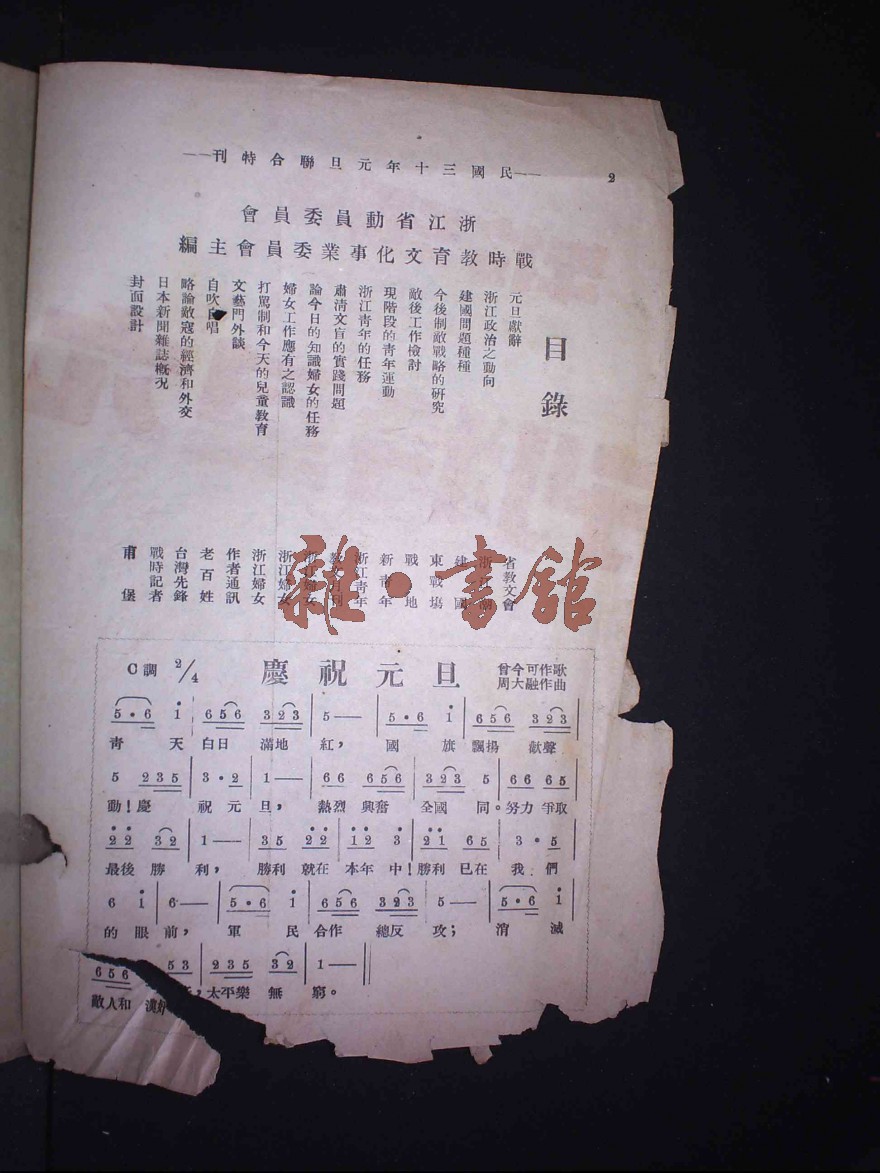 ——民國三十年元旦聯合特刊——
2
浙江省動員委員會
戰時教育文化事業委員會主編
目錄
元旦獻辭
浙江政治之動向
建國問題種種
今後制敵戰略的研究
敵後工作檢討
現階段的青年運動
浙江青年的任務
肅清文盲的實踐問題
論今日的知識婦女的任務
婦女工作應有之認識
打罵制和今天的兒童教育
文藝門外談
自吹自唱
略論敵寇的經濟和外交
日本新聞雜誌概况
封面設計
省教文會
浙江潮
建國
東戰場
戰地
新青年
浙江青年
浙江婦女
浙江婦女
作者通訊
老百姓
台灣先鋒
戰時記者
甫堡
雜·書館
C調 2/4
慶祝元旦
曾今可作歌
周大融作曲
5·6 i 656 323 5— 5·6 i 656 323
青天白日滿地紅，國旗飄揚歡聲
5 235 3·2 1— 66 656 323 5 66 65
動！慶祝元旦，熱烈興奮全國同。努力爭取
22 32 1— 35 22 12 3 21 65 3·5
最後勝利，勝利就在本年中！勝利已在我們
6 i 6— 5·6 i 656 323 5— 5·6 i
的眼前，軍民合作總反攻；消滅
656 53 235 32 1—
敵人和漢奸，太平樂無窮。